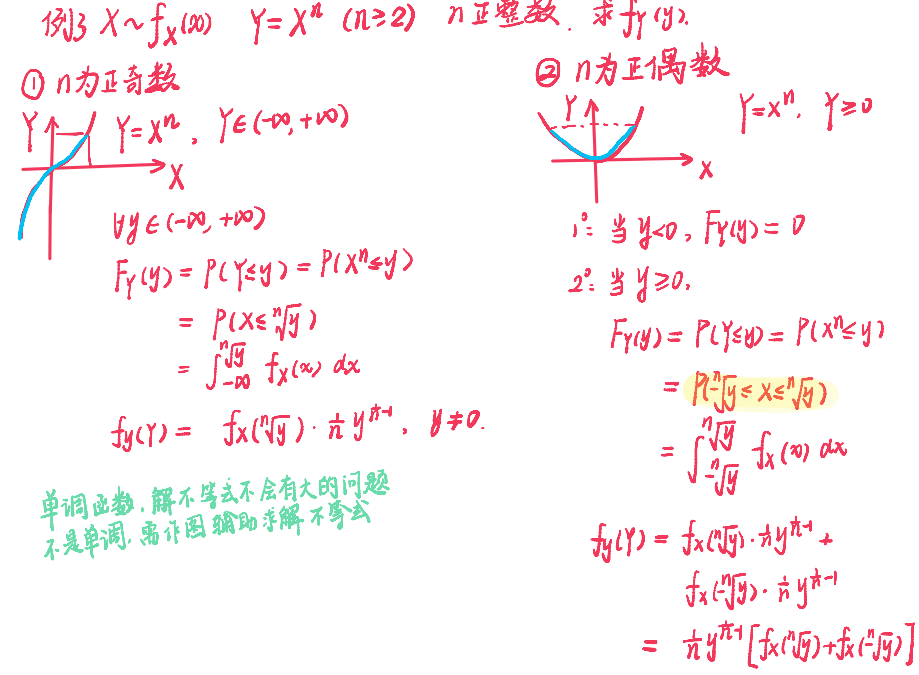 例3 X~fₓ(x) Y=Xⁿ (n≥2) n正整数. 求f_Y(y).
① n为正奇数
Y
Y=Xⁿ, Y∈(-∞,+∞)
X
∀y∈(-∞,+∞)
F_Y(y) = P(Y≤y) = P(Xⁿ≤y)
= P(X≤ⁿ√y)
= ∫_{-∞}^{ⁿ√y} f_X(x) dx
f_y(Y) = f_X(ⁿ√y)·1/n y^{1/n-1}, y≠0.
单调函数,解不等式不会有大的问题
不是单调,需作图辅助求解不等式
② n为正偶数
Y
Y=Xⁿ, Y≥0
X
1°: 当y<0, F_Y(y)=0
2°: 当y≥0,
F_Y(y) = P(Y≤y) = P(Xⁿ≤y)
= P(-ⁿ√y≤X≤ⁿ√y)
= ∫_{-ⁿ√y}^{ⁿ√y} f_X(x) dx
f_y(Y) = f_X(ⁿ√y)·1/n y^{1/n-1} +
f_X(-ⁿ√y)·1/n y^{1/n-1}
= 1/n y^{1/n-1}[f_X(ⁿ√y)+f_X(-ⁿ√y)]